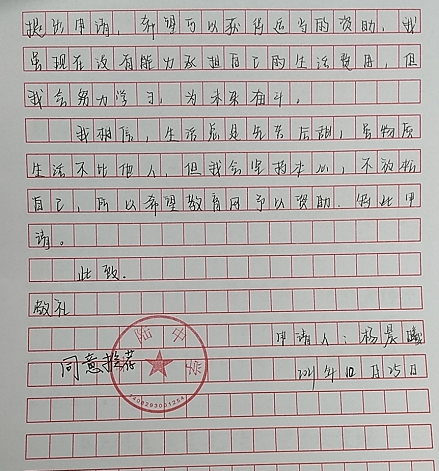 提出申请，希望可以获得适当的资助，我
虽现在没有能力承担自己的生活费用，但
我会努力学习，为未来奋斗。
我相信，生活总是先苦后甜，虽物质
生活不比他人，但我会坚持本心，不放松
自己，所以希望教育网予以资助。特此申
请。
此致.
敬礼
申请人：杨晨曦
同意推荐
2021年10月25日
陆中学
3408293001254